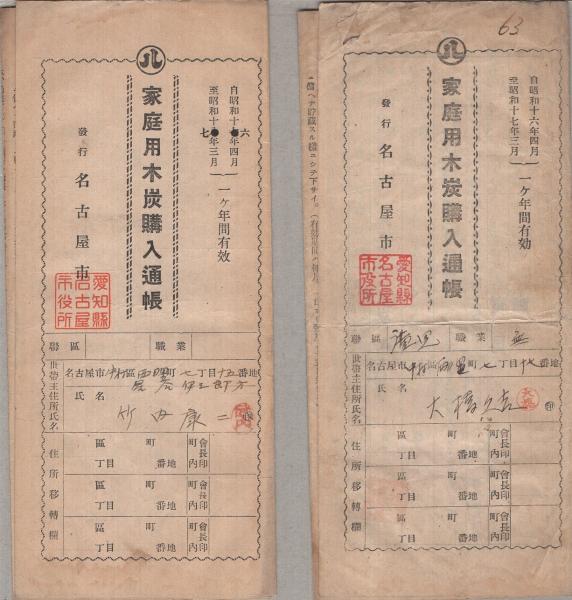 八
家庭用木炭購入通帳
自昭和十●年四月
六
至昭和十●年三月
七
一ヶ年間有効
發行 名古屋市
愛知縣
名古屋
市役所
聯區
職業
世帶主住所氏名
名古屋市 中村區 町七丁目十五番地
氏名
竹内康二
住所移轉欄
區 町
丁目 番地
町會長
内印
區 町
丁目 番地
町會長
内印
區 町
丁目 番地
町會長
内印
63
八
家庭用木炭購入通帳
自昭和十六年四月
至昭和十七年三月
一ヶ年間有効
發行 名古屋市
愛知縣
名古屋
市役所
聯區
職業 無
世帶主住所氏名
名古屋市中村區 町七丁目十七番地
氏名
大橋
印
住所移轉欄
區 町
丁目 番地
町會長
内印
區 町
丁目 番地
町會長
内印
區 町
丁目 番地
町會長
内印